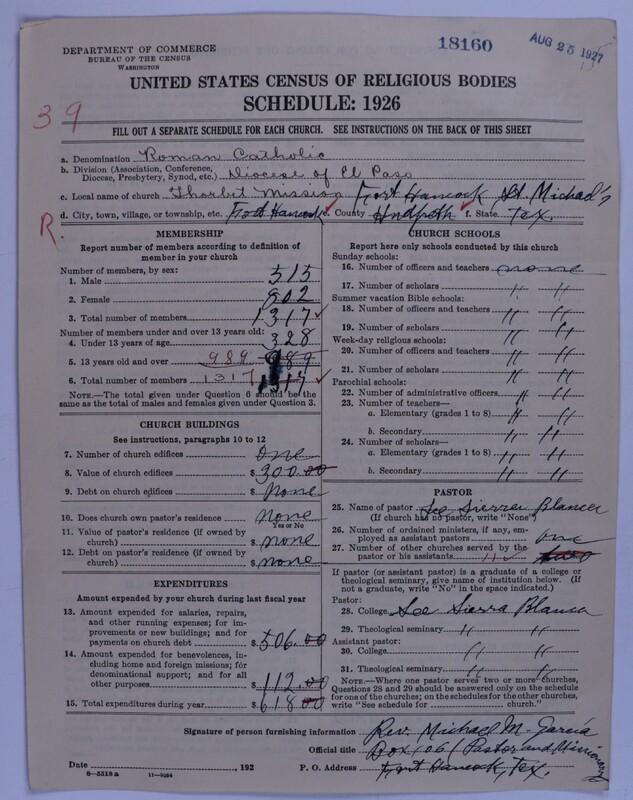 DEPARTMENT OF COMMERCE
BUREAU OF THE CENSUS
WASHINGTON
18160
AUG 25 1927
UNITED STATES CENSUS OF RELIGIOUS BODIES
SCHEDULE: 1926
39
FILL OUT A SEPARATE SCHEDULE FOR EACH CHURCH. SEE INSTRUCTIONS ON THE BACK OF THIS SHEET
a. Denomination Roman Catholic
b. Division (Association, Conference, Diocese, Presbytery, Synod, etc.) Diocese of El Paso
c. Local name of church Mission Fort Hancock St. Michael's
R.
d. City, town, village, or township, etc. Fort Hancock e. County Hudspeth f. State Tex.
MEMBERSHIP
Report number of members according to definition of member in your church
Number of members, by sex:
1. Male 515
2. Female 802
3. Total number of members 1317
Number of members under and over 13 years old:
4. Under 13 years of age 328
5. 13 years old and over 989 989
6. Total number of members 1317 1317
NOTE.—The total given under Question 6 should be the same as the total of males and females given under Question 3.
CHURCH BUILDINGS
See instructions, paragraphs 10 to 12
7. Number of church edifices One
8. Value of church edifices $ 300.00
9. Debt on church edifices $ None
10. Does church own pastor's residence None
Yes or No
11. Value of pastor's residence (if owned by church) $ none
12. Debt on pastor's residence (if owned by church) $ none
EXPENDITURES
Amount expended by your church during last fiscal year
13. Amount expended for salaries, repairs, and other running expenses; for improvements or new buildings; and for payments on church debt $ 506.00
14. Amount expended for benevolences, including home and foreign missions; for denominational support; and for all other purposes $ 112.00
15. Total expenditures during year $ 618.00
CHURCH SCHOOLS
Report here only schools conducted by this church
Sunday schools:
16. Number of officers and teachers none
17. Number of scholars " "
Summer vacation Bible schools:
18. Number of officers and teachers " "
19. Number of scholars " "
Week-day religious schools:
20. Number of officers and teachers " "
21. Number of scholars " "
Parochial schools:
22. Number of administrative officers " "
23. Number of teachers—
a. Elementary (grades 1 to 8) " "
b. Secondary " "
24. Number of scholars—
a. Elementary (grades 1 to 8) " "
b. Secondary " "
PASTOR
25. Name of pastor See Sierra Blanca
(If church has no pastor, write "None")
26. Number of ordained ministers, if any, employed as assistant pastors one
27. Number of other churches served by the pastor or his assistants 11
If pastor (or assistant pastor) is a graduate of a college or theological seminary, give name of institution below. (If not a graduate, write "No" in the space indicated.)
Pastor:
28. College See Sierra Blanca
29. Theological seminary " "
Assistant pastor:
30. College " "
31. Theological seminary " "
NOTE.—Where one pastor serves two or more churches, Questions 28 and 29 should be answered only on the schedule for one of the churches; on the schedules for the other churches, write "See schedule for church."
Signature of person furnishing information Rev. Michael M. García
Official title Box 106 / Pastor and Missionary
Date , 192 P. O. Address Fort Hancock, Tex.
8—5518 a 11—9264